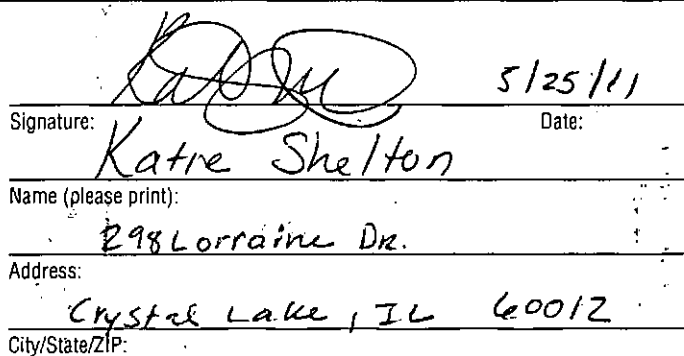 5/25/11
Signature: Date:
Katie Shelton
Name (please print):
298 Lorraine Dr.
Address:
Crystal Lake, IL 60012
City/State/ZIP: